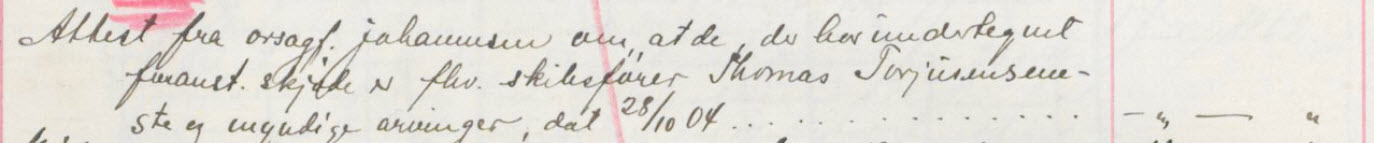 Attest fra orsagf. Johannsen om, at de, der har undertegnet
foranst. skjøde er fhv. skibsfører Thomas Torjusens ene-
ste og myndige arvinger, dat 28/10 04 . . . . . . . . . . . . . . . — " — "